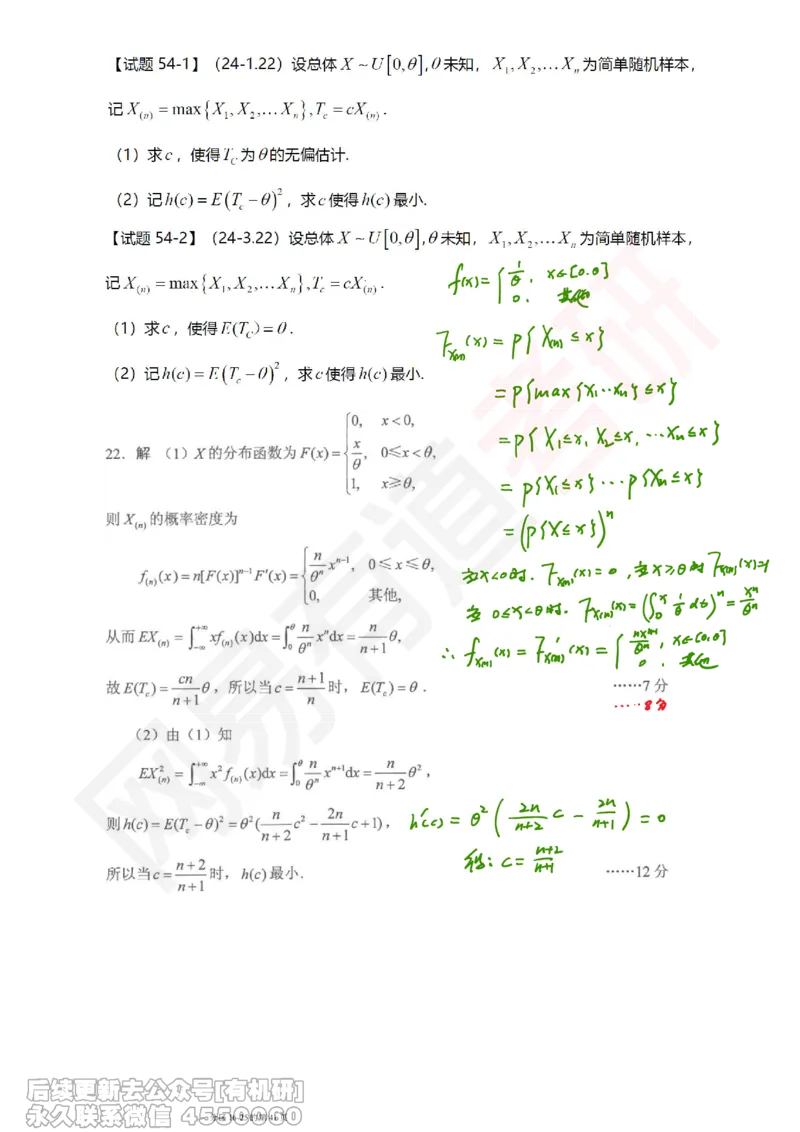 【试题 54-1】(24-1.22)设总体 X ~ U[0,θ],θ未知, X₁,X₂,…Xₙ 为简单随机样本,
记 X₍ₙ₎ = max{X₁,X₂,…Xₙ},T_c = cX₍ₙ₎.
(1)求c,使得T_C为θ的无偏估计.
(2)记h(c) = E(T_c − θ)²,求c使得h(c)最小.
【试题 54-2】(24-3.22)设总体 X ~ U[0,θ],θ未知, X₁,X₂,…Xₙ 为简单随机样本,
记 X₍ₙ₎ = max{X₁,X₂,…Xₙ},T_c = cX₍ₙ₎.
(1)求c,使得E(T_C) = θ.
(2)记h(c) = E(T_c − θ)²,求c使得h(c)最小.
f(x) = { 1/θ, x∈[0,θ]
0, 其他
F_X₍ₙ₎(x) = P{X₍ₙ₎ ≤ x}
= P{max{X₁…Xₙ} ≤ x}
= P{X₁≤x, X₂≤x, …Xₙ≤x}
= P{X₁≤x}…P{Xₙ≤x}
= (P{X≤x})ⁿ
当x<0时, F_X₍ₙ₎(x) = 0, 当x≥θ时 F_X₍ₙ₎(x)=1
当 0≤x<θ时, F_X₍ₙ₎(x) = (∫₀ˣ 1/θ dt)ⁿ = xⁿ/θⁿ
∴ f_X₍ₙ₎(x) = F'_X₍ₙ₎(x) = { nxⁿ⁻¹/θⁿ, x∈[0,θ]
0, 其他
22. 解 (1)X的分布函数为 F(x) = { 0, x<0,
x/θ, 0≤x<θ,
1, x≥θ,
则 X₍ₙ₎ 的概率密度为
f₍ₙ₎(x) = n[F(x)]ⁿ⁻¹F′(x) = { n/θⁿ xⁿ⁻¹, 0≤x≤θ,
0, 其他,
从而 EX₍ₙ₎ = ∫_{-∞}^{+∞} xf₍ₙ₎(x)dx = ∫₀^θ n/θⁿ xⁿdx = n/(n+1) θ,
故 E(T_c) = cn/(n+1) θ,所以当 c = (n+1)/n 时, E(T_c) = θ.
……7 分
……8分
(2)由(1)知
EX²₍ₙ₎ = ∫_{-∞}^{+∞} x²f₍ₙ₎(x)dx = ∫₀^θ n/θⁿ xⁿ⁺¹dx = n/(n+2) θ²,
则 h(c) = E(T_c − θ)² = θ²(n/(n+2) c² − 2n/(n+1) c + 1),
h'(c) = θ²(2n/(n+2) c − 2n/(n+1)) = 0
得: c = (n+2)/(n+1)
所以当 c = (n+2)/(n+1) 时, h(c) 最小.
……12 分
网易有道考研
后续更新去公众号[有机研]
永久联系微信 4550060